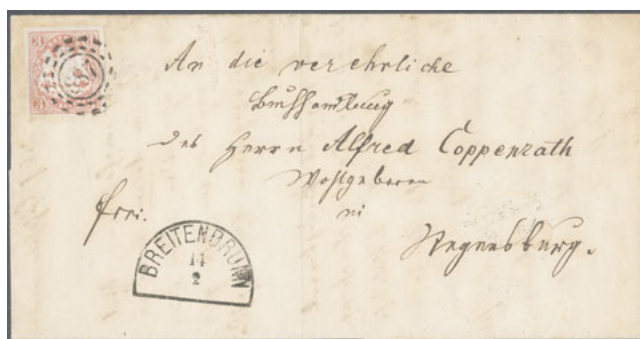 An die verehrliche
Buchhandlung
des Herrn Alfred Coppenrath
Wohlgeboren
in
frei.
Regensburg.
BREITENBRUNN
14
2